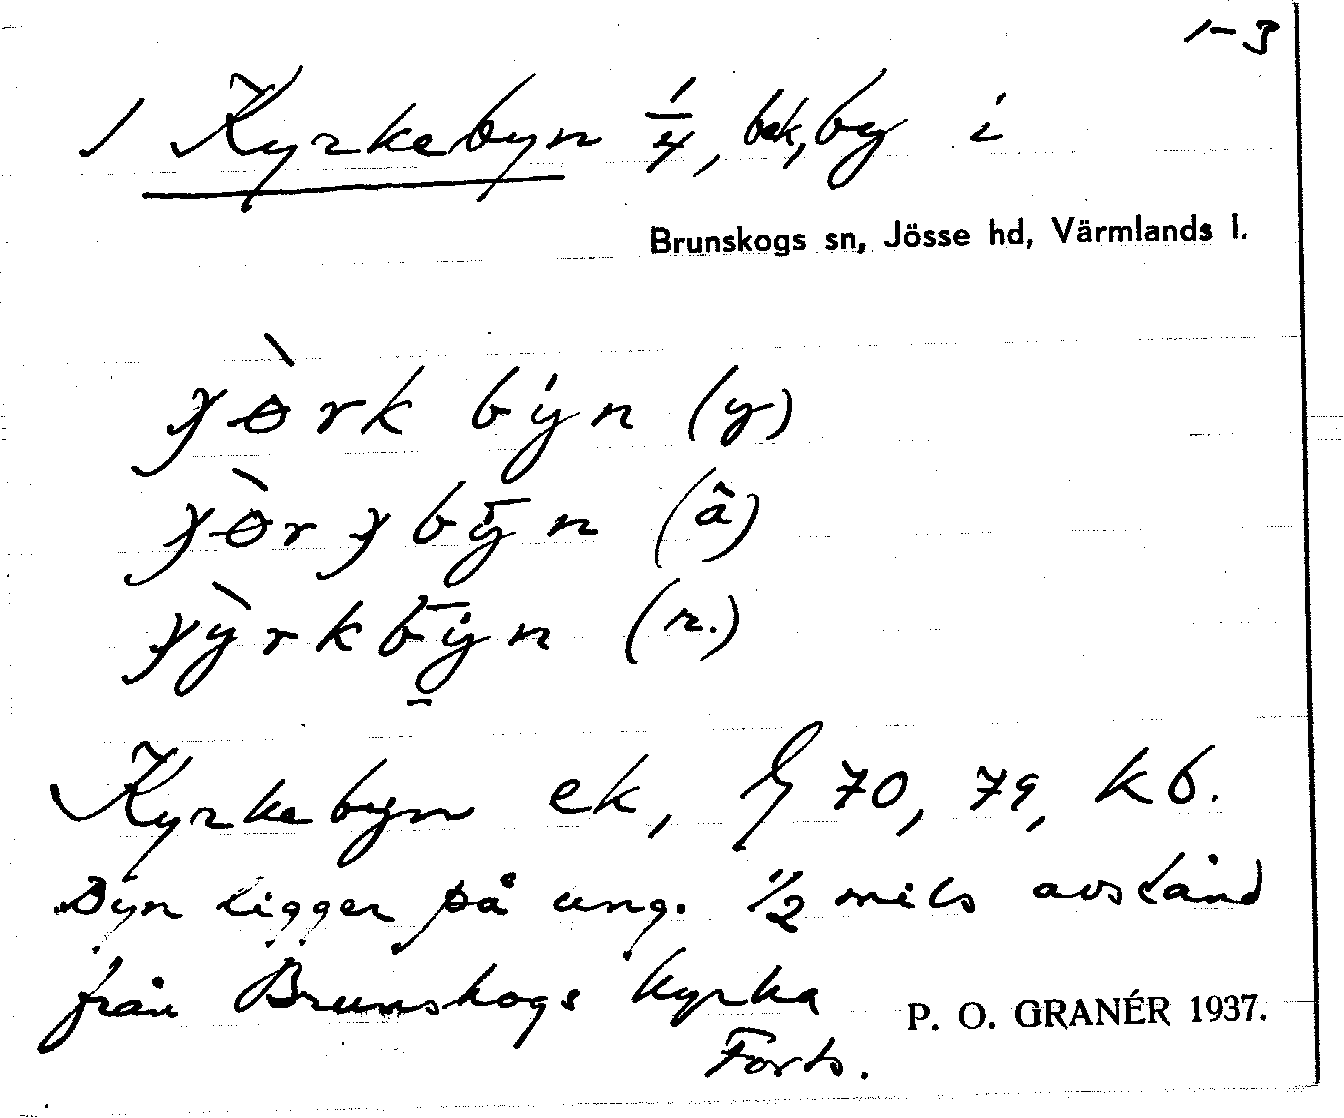 1-3
1 Kyrkebyn 1/4, bek, by i
Brunskogs sn, Jösse hd, Värmlands l.
býn (y)
(ä)
(n.)
Kyrkebyn ek, G 70, 79, kb.
Byn ligger på ung. 1/2 mils avstånd
från Brunskogs kyrka
P. O. GRANÉR 1937.
Forts.